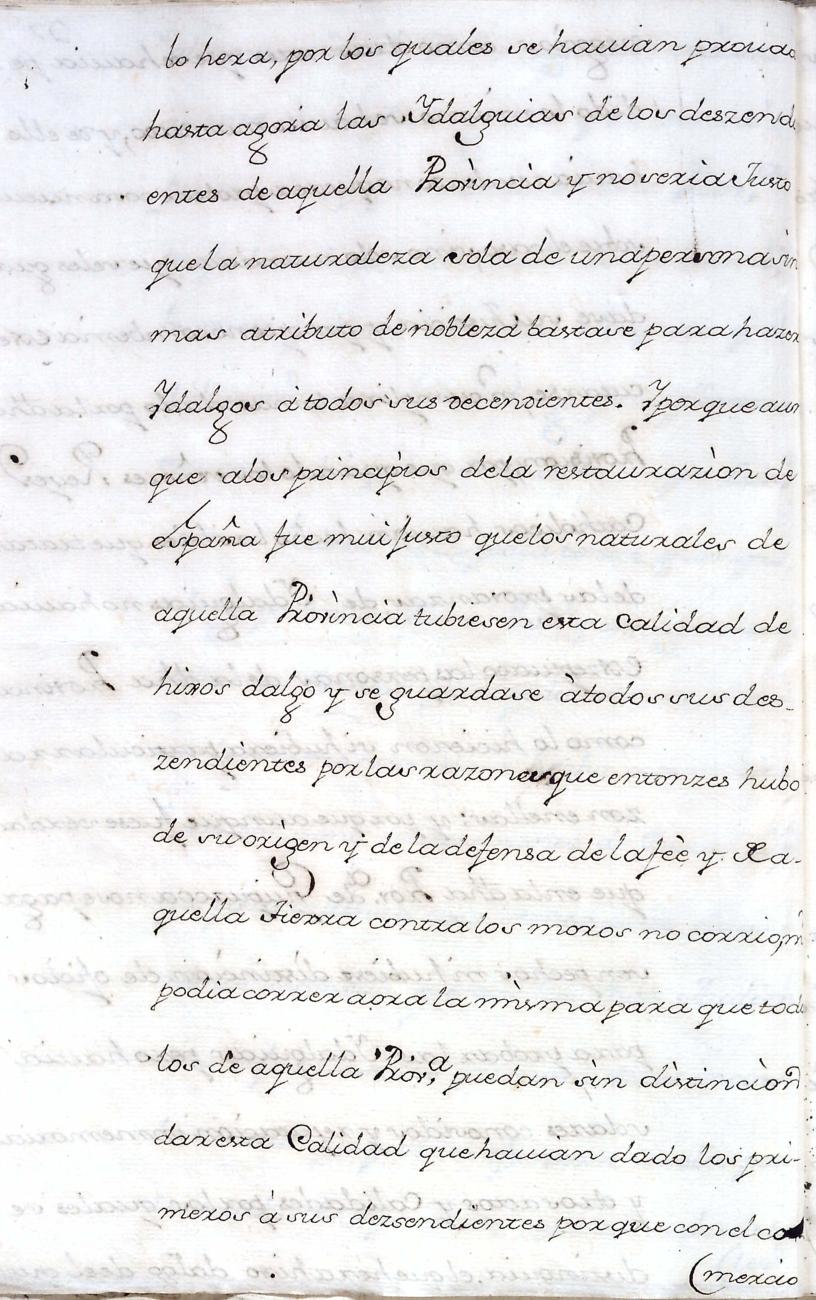 lo hera, por los quales se hauian prouad
hasta agora las Ydalguias de los deszend
entes de aquella Provincia y no seria Justo
que la naturaleza sola de una persona sin
mas atributo de nobleza bastase para hazer
Ydalgos à todos sus decendientes. Y porque aun
que alos principios dela restaurazion de
españa fue mui Justo quelos naturales de
aquella Provincia tubiesen esta Calidad de
hixos dalgo y se guardase à todos sus des-
zendientes por las razones que entonzes hubo
de su origen y de la defensa de la feè y
quella Tierra contra los moros no corrio, ni
podia correr aora la misma para que todos
los de aquella Prov.ª puedan sin distincion
dar esta Calidad que hauian dado los pri-
meros à sus dezsendientes por que con el co
mercio